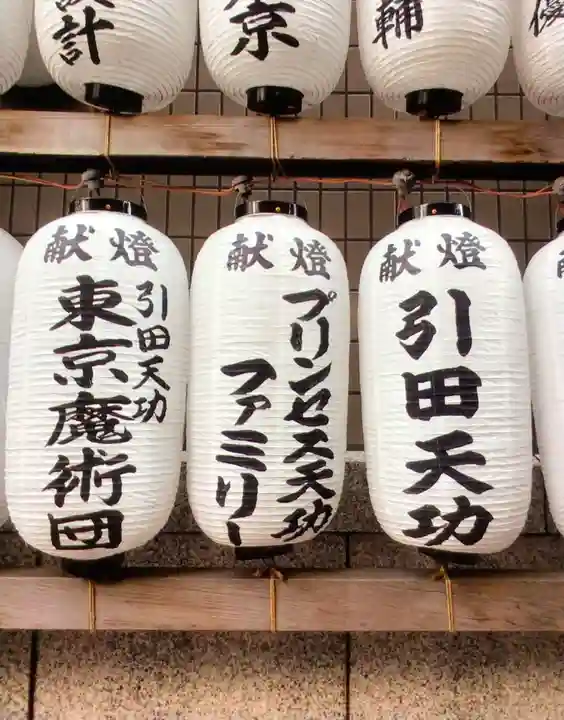 計
京
輔
優
献燈
引田天功
献燈
プリンセス天功
ファミリー
献燈
引田天功
東京魔術団